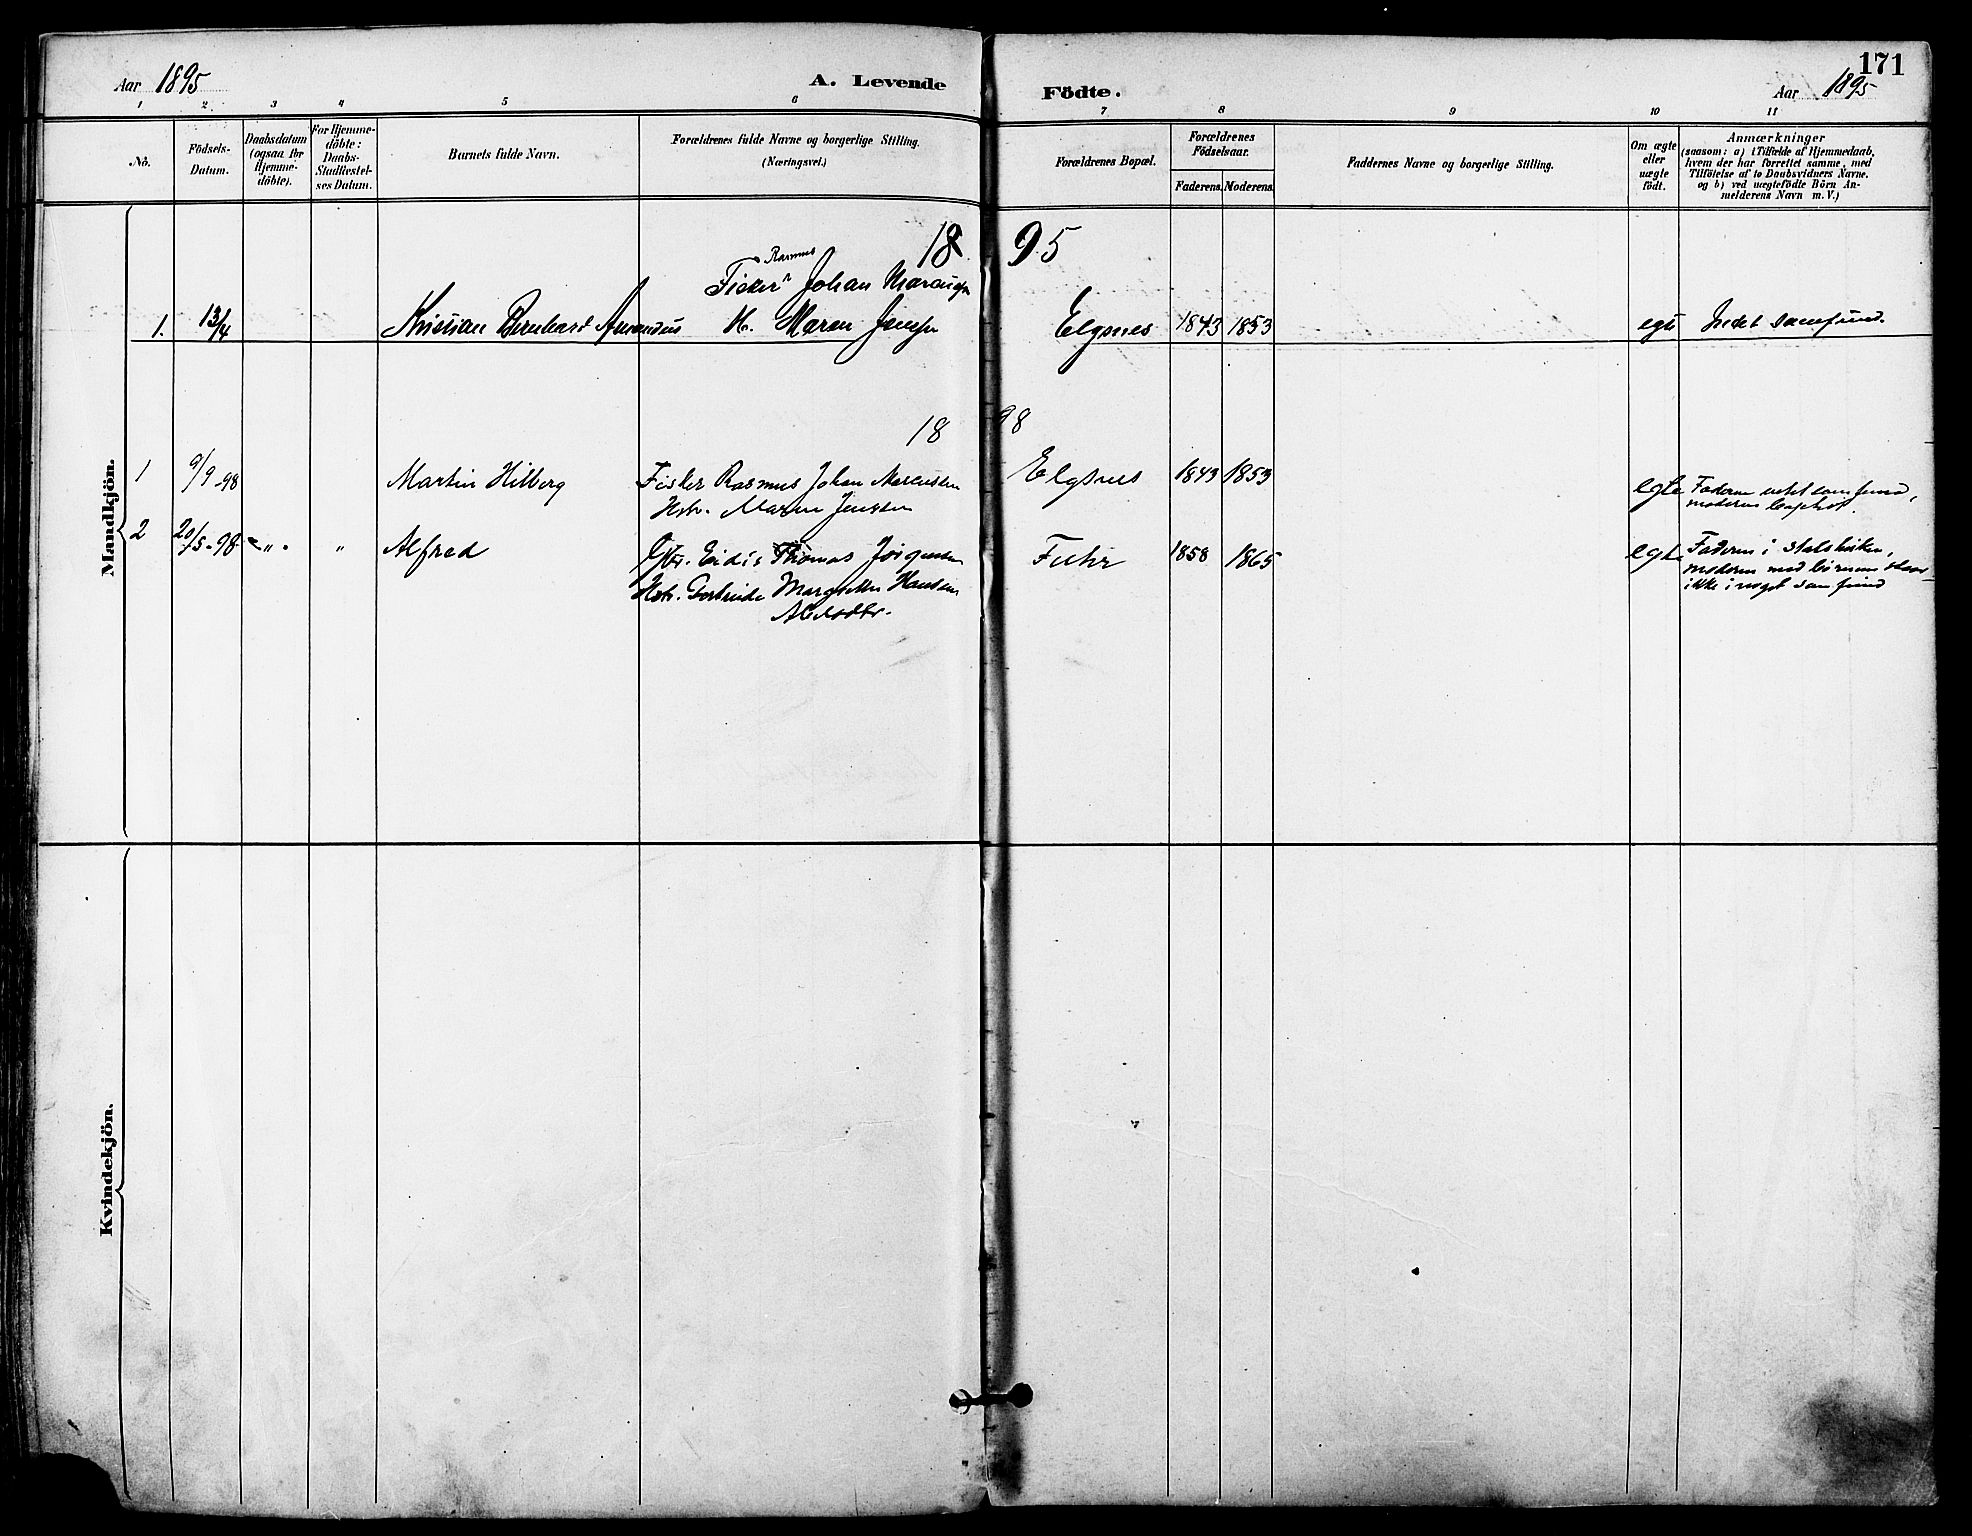 171
Aar 1895
A. Levende Födte.
Aar 1895
1 2 3 4 5 6 7 8 9 10 11
No.
Födsels-
Datum.
Daabsdatum
(ogsaa for
Hjemme-
döbte).
For Hjemme-
döbte:
Daabs-
Stadfæstel-
ses Datum.
Barnets fulde Navn.
Forældrenes fulde Navne og borgerlige Stilling.
(Næringsvei.)
Forældrenes Bopæl.
Forældrenes
Födselsaar.
Faderens. Moderens.
Faddernes Navne og borgerlige Stilling.
Om ægte
eller
uægte
födt.
Anmærkninger
(saasom: a) i Tilfælde af Hjemmedaab,
hvem der har forrettet samme, med
Tilföielse af to Daabsvidners Navne.
og b) ved uægtefödte Börn An-
melderens Navn m. V.)
Mandkjön.
1895
Rasmus
Fisker Johan
1. 13/4 Kristian Bernhard Amandus H. Maren Elgsnes 1843 1853 egte Intet samfund.
1898
1 9/9-98 Martin Hilberg Fisker Rasmus Johan Elgsnes 1843 1853 egte Faderen samfund,
Hstr. Maren Jenssen moderen
2 20/5-98 " " Alfred Eidis Thomas 1858 1865 egte Faderen i statskirken,
Hstr. Hansen moderen med børnene staar
ikke i noget samfund
Kvindekjön.